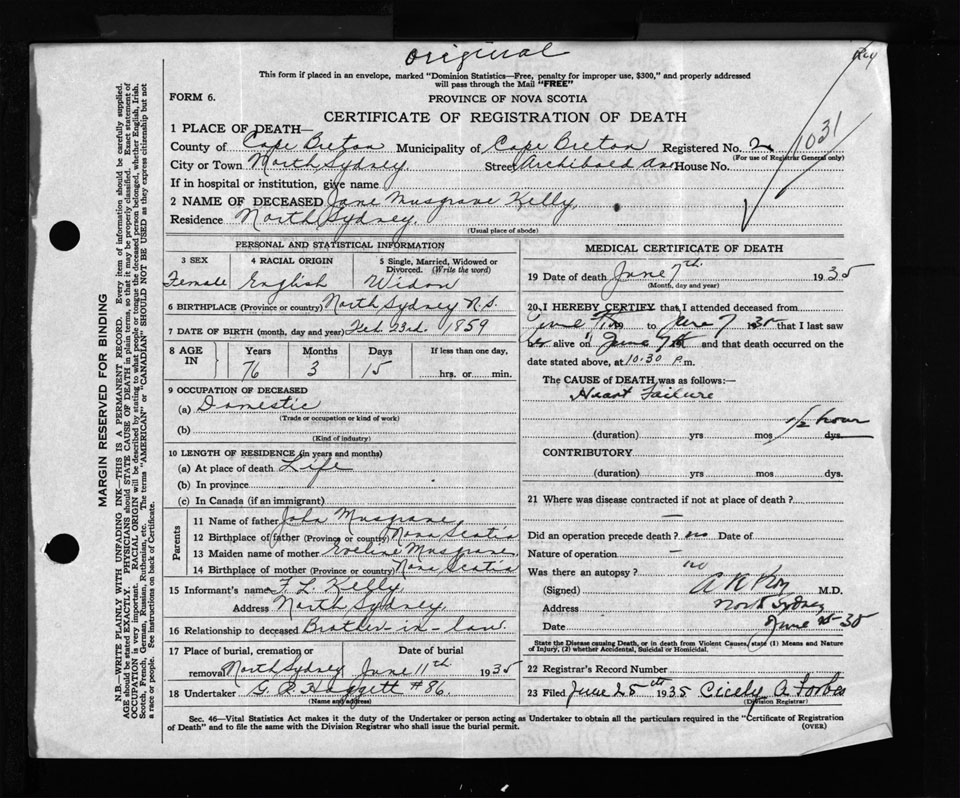 Original
This form if placed in an envelope, marked "Dominion Statistics—Free, penalty for improper use, $300," and properly addressed
will pass through the Mail "FREE"
FORM 6.
PROVINCE OF NOVA SCOTIA
CERTIFICATE OF REGISTRATION OF DEATH
1031
1 PLACE OF DEATH—
County of Cape Breton Municipality of Cape Breton Registered No. 2
(For use of Registrar General only)
City or Town North Sydney. Street Archibald Ave House No.
If in hospital or institution, give name
2 NAME OF DECEASED Jane Musgrave Kelly.
Residence North Sydney.
(Usual place of abode)
PERSONAL AND STATISTICAL INFORMATION
3 SEX 4 RACIAL ORIGIN 5 Single, Married, Widowed or Divorced. (Write the word)
Female English Widow
6 BIRTHPLACE (Province or country) North Sydney N.S.
7 DATE OF BIRTH (month, day and year) Feb. 23rd. 1859
8 AGE IN Years Months Days If less than one day,
76 3 15 hrs. or min.
9 OCCUPATION OF DECEASED
(a) Domestic
(Trade or occupation or kind of work)
(b)
(Kind of industry)
10 LENGTH OF RESIDENCE (in years and months)
(a) At place of death Life
(b) In province
(c) In Canada (if an immigrant)
Parents
11 Name of father Musgrave
12 Birthplace of father (Province or country) Nova Scotia
13 Maiden name of mother Eveline Musgrave
14 Birthplace of mother (Province or country) Nova Scotia
15 Informant's name F. L. Kelly.
Address North Sydney.
16 Relationship to deceased Brother-in-law.
17 Place of burial, cremation or removal Date of burial
North Sydney June 11th 1935
18 Undertaker G. #86.
(Name and address)
MEDICAL CERTIFICATE OF DEATH
19 Date of death June 7th. 1935
(Month, day and year)
20 I HEREBY CERTIFY that I attended deceased from
June to June 7 1935 that I last saw
alive on June 7th and that death occurred on the
date stated above, at 10.30 p.m.
The CAUSE of DEATH was as follows:—
Heart Failure
1/2 hour
(duration) yrs mos dys.
CONTRIBUTORY
(duration) yrs. mos. dys.
21 Where was disease contracted if not at place of death?
—
Did an operation precede death? no Date of
Nature of operation —
Was there an autopsy? no
(Signed) M.D.
Address North Sydney
Date June 35
State the Disease causing Death, or in death from Violent Causes, state (1) Means and Nature
of Injury, (2) whether Accidental, Suicidal or Homicidal.
22 Registrar's Record Number
23 Filed June 25th 1935 Cicely A. Forbes
(Division Registrar)
Sec. 46—Vital Statistics Act makes it the duty of the Undertaker or person acting as Undertaker to obtain all the particulars required in the "Certificate of Registration
of Death" and to file the same with the Division Registrar who shall issue the burial permit.
(OVER)
MARGIN RESERVED FOR BINDING
N.B.—WRITE PLAINLY WITH UNFADING INK—THIS IS A PERMANENT RECORD. Every item of information should be carefully supplied.
AGE should be stated EXACTLY. PHYSICIANS should STATE CAUSE OF DEATH in plain terms, so that it may be properly classified. Exact statement of
OCCUPATION is very important. RACIAL ORIGIN will be described by stating to what people or tongue the deceased person belonged, whether English, Irish,
Scotch, French, German, Russian, Ruthenian, etc. The terms "AMERICAN" or "CANADIAN" SHOULD NOT BE USED as they express citizenship but not
a race or people. See instructions on back of Certificate.